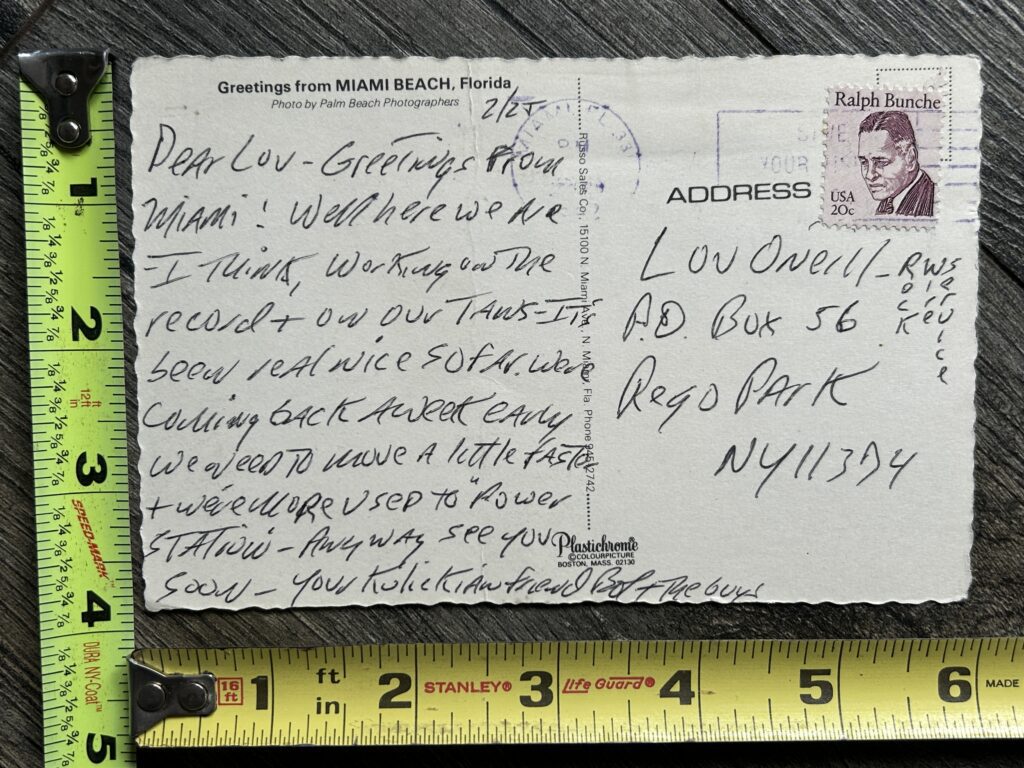 Greetings from MIAMI BEACH, Florida
Photo by Palm Beach Photographers
Dear Lou - Greetings from
Miami! Well here we are
- I Think, working on the
record + on our Tans - It's
been real nice so far. were
coming back a week early
we need to move a little faster
+ we're more used to "Power
Station - Anyway see you
soon - your Kulickian friend Bob + the guys
Russo Sales Co., 15100 N. Miami Ave., N. Miami, Fla. Phone 945-2742
Plastichrome®
©COLOURPICTURE
BOSTON, MASS. 02130
MIAMI, FL 331
YOUR
Ralph Bunche
USA
20c
ADDRESS
Lou Oneill - Rock Wire Service
P.O. Box 56
Rego Park
NY 11374
1 2 3 4 5
12 ft
SPEED-MARK™
DURA NY-Coat™
16 ft
1 ft in 2 STANLEY® 3 Life Guard® 4 5 6 MADE